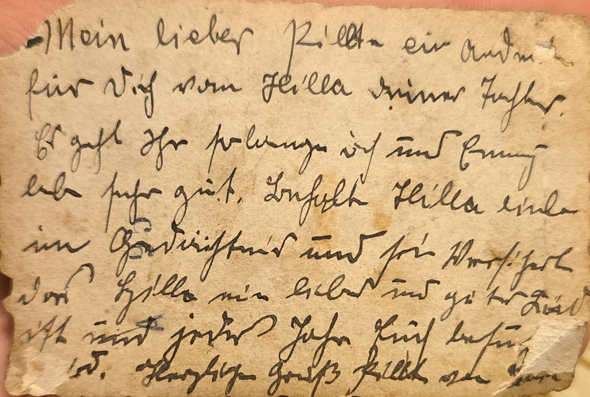 Mein lieber Killt ein Andenken
für Dich vom Hilla deiner Tochter.
Es geht Ihr solange ich und Emmy
lebe sehr gut. Behalte Hilla liebe
im Gedächtnis und sei Versichert
das Hilla ein liebes und gutes Kind
ist und jedes Jahr Euch besu
wird. Herzlichen Gruß Killt von